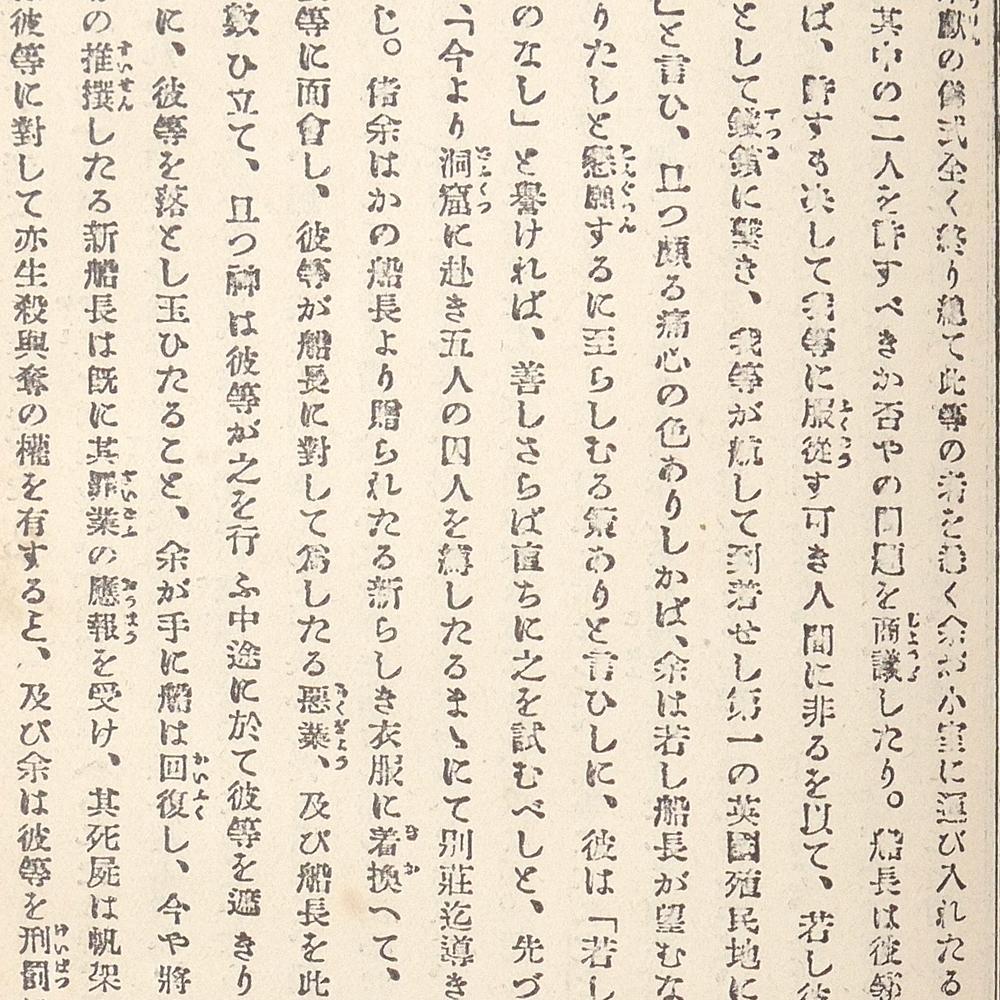 獻の儀式全く終り總て此等の者を悉く余が小室に運び入れたる
其中の二人を許すべきか否やの問題を商議したり。船長は彼等
ば、許すも決して我等に服從す可き人間に非るを以て、若し彼
として鐵鎖に繫き、我等が航して到着せし第一の英國殖民地に
と言ひ、且つ頗る痛心の色ありしかば、余は若し船長が望むな
りたしと懇願するに至らしむる策ありと言ひしに、彼は「若し
のなし」と譽けれは、善しさらば直ちに之を試むべしと、先づ
「今より洞窟に赴き五人の囚人を縛したるまゝにて別莊迄導き
じ。偖余はかの船長より贈られたる新らしき衣服に着換へて、
等に面會し、彼等が船長に對して爲したる惡業、及び船長を此
數ひ立て、且つ神は彼等が之を行ふ中途に於て彼等を遮きり
に、彼等を落とし玉ひたること、余が手に船は回復し、今や將
の推撰したる新船長は既に其罪業の應報を受け、其死屍は帆架
彼等に對して亦生殺與奪の權を有すると、及び余は彼等を刑罰